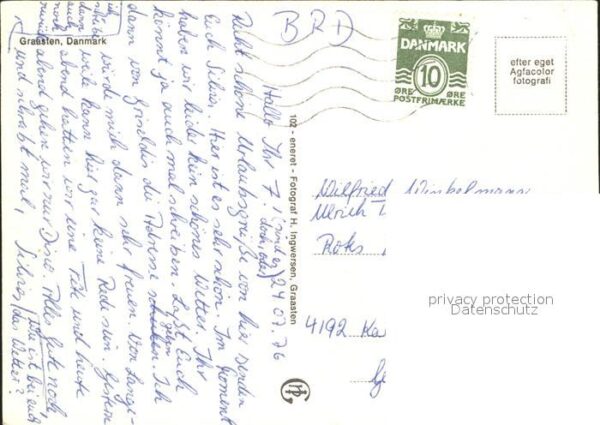 Graasten, Danmark
BRD
DANMARK
10
ØRE ØRE
POSTFRIMÆRKE
efter eget
Agfacolor
fotografi
102 - eneret - Fotograf H. Ingwersen, Graasten
24.07.76
Hallo Ihr 7.
Recht schöne Urlaubsgrüße von hier senden
Euch Silvia. Hier ist es sehr schön. Im Moment
haben wir leider kein schönes Wetter. Ihr
könnt ja auch mal schreiben. Laßt Euch
dann von Grineldis die Adresse geben. Ich
würde mich dann sehr freuen. Von Lange-
weile kann hier gar keine Rede sein. Gestern
abend hatten wir eine Fete und heute
abend gehen wir zur Disco. Alles Gute noch
und schreibt mal, Silvia
Wie ist bei euch
das Wetter?
Wilfried Winkelmann
Ulrich
4192 Ka
privacy protection
Datenschutz